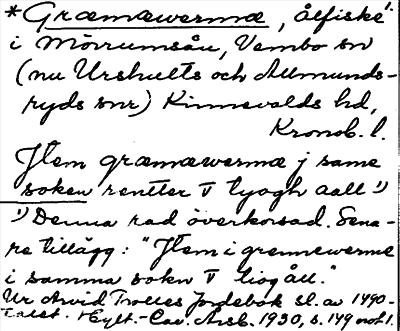 *Græmæwermæ, ålfiske
i Mörrumsån, Vembo sn
(nu Urshults och Almunds-
ryds snr) Kinnevalds hd,
Kronob. l.
Jtem græmæwermæ j same
soken rentter V tyogh aall 1)
1) Denna rad överkorsad. Sena-
re tillägg: "Jtem i gremewerme
i samma sokn V tiog åll."
Ur Arvid Trolles Jordebok sl. av 1490-
talet. Hylt.-Cav. Årsb. 1930, s. 149 och 1.